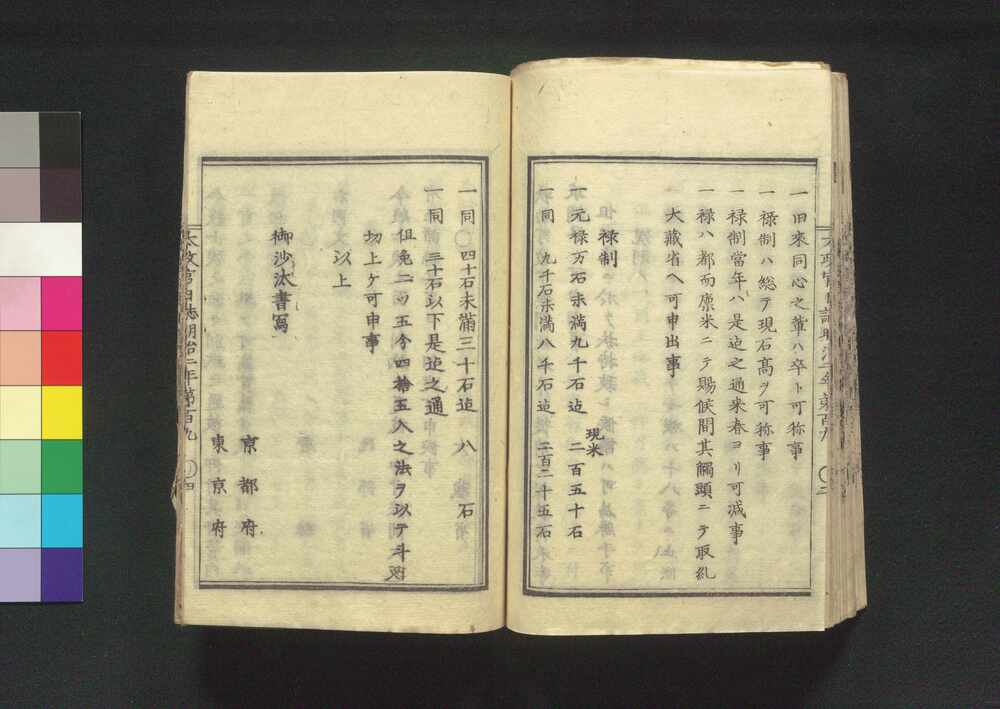 一旧来同心之輩ハ卒ト可称事
一禄制ハ総テ現石高ヲ可称事
一禄制當年ハ是迠之通来春ヨリ可減事
一禄ハ都而廩米ニテ賜候間其觸頭ニテ取糺
大藏省ヘ可申出事
禄制
現米
一元禄万石未満九千石迠 二百五十石
一同 九千石未満八千石迠 二百二十五石
一同〇四十石未滿三十石迠 八石
一同 三十石以下是迠之通
但免二ツ五分四拾五入之法ヲ以テ斗
切上ケ可申事
以上
御沙汰書写
京都府
東京府
太政官日誌明治二年第百九 〇四